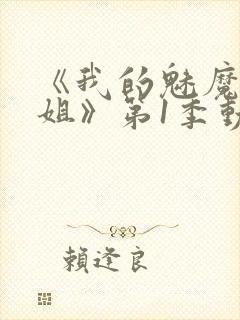 《我的魅魔
姐》第1季動
賴逢良